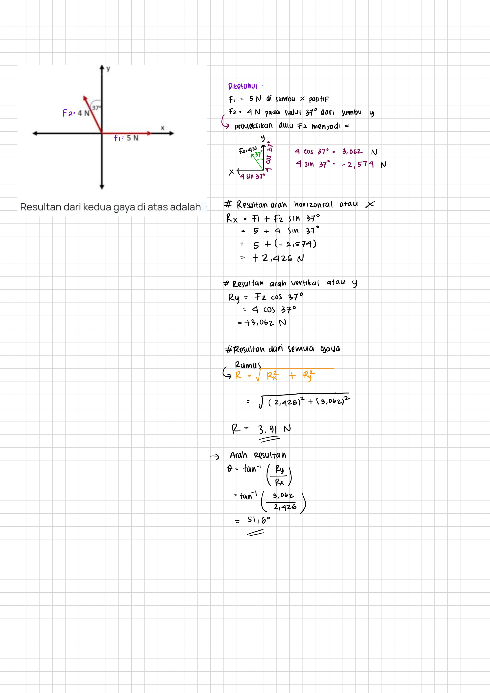 y
F2= 4 N
37°
x
f1= 5 N
Resultan dari kedua gaya di atas adalah
Diketahui :
F1 = 5 N di sumbu x positif
F2 = 4 N pada sudut 37° dari sumbu y
→ proyeksikan dulu F2 menjadi =
y
F2=4N
37°
4 cos 37°
x
4 sin 37°
4 cos 37° = 3,062 N
4 sin 37° = -2,574 N
# Resultan arah horizontal atau x
Rx = F1 + F2 sin 37°
= 5 + 4 sin 37°
= 5 + (-2,574)
= +2,426 N
# Resultan arah vertikal atau y
Ry = F2 cos 37°
= 4 cos 37°
= +3,062 N
#Resultan dari semua gaya
Rumus
→ R = √Rx² + Ry²
= √(2,426)² + (3,062)²
R = 3,91 N
→ Arah resultan
θ = tan⁻¹ (Ry/Rx)
= tan⁻¹ (3,062/2,426)
= 51,6°